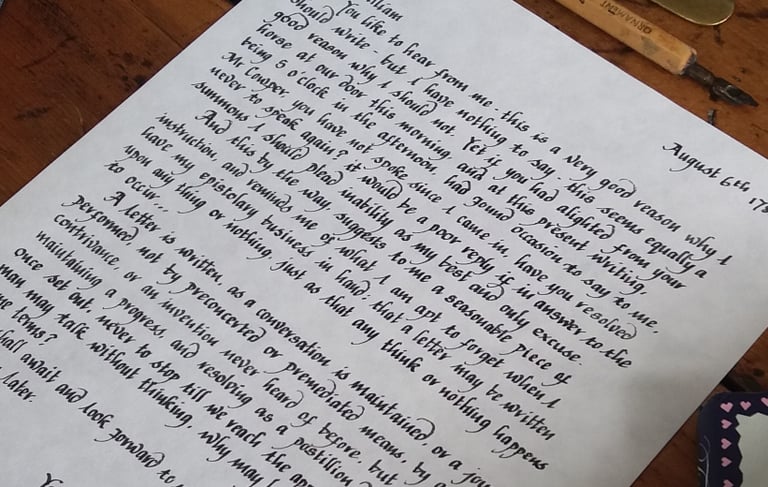 August 6th 178
lliam
You like to hear from me - this is a very good reason why I
should write - but I have nothing to say - this seems equally a
good reason why I should not. Yet if you had alighted from your
horse at our door this morning, and at this present writing,
being 5 o'clock in the afternoon, had found occasion to say to me,
Mr Cowper, you have not spoke since I came in, have you resolved
never to speak again? it would be a poor reply if in answer to the
summons I should plead inability as my best and only excuse.
And this by the way suggests to me a seasonable piece of
instruction, and reminds me of what I am apt to forget when I
have my epistolary business in hand; that a letter may be written
upon any thing or nothing, just as that any think or nothing happens
to occur...
A letter is written, as a conversation is maintained or a jou
performed, not by preconcerted or premediated means, by a
contrivance, or an invention never heard of before, but
maintaining a progress, and resolving as a postillion d
once set out, never to stop till we reach the app
man may talk without thinking, why may
terms?
hall await and look forward to
later.
ORNAMENT